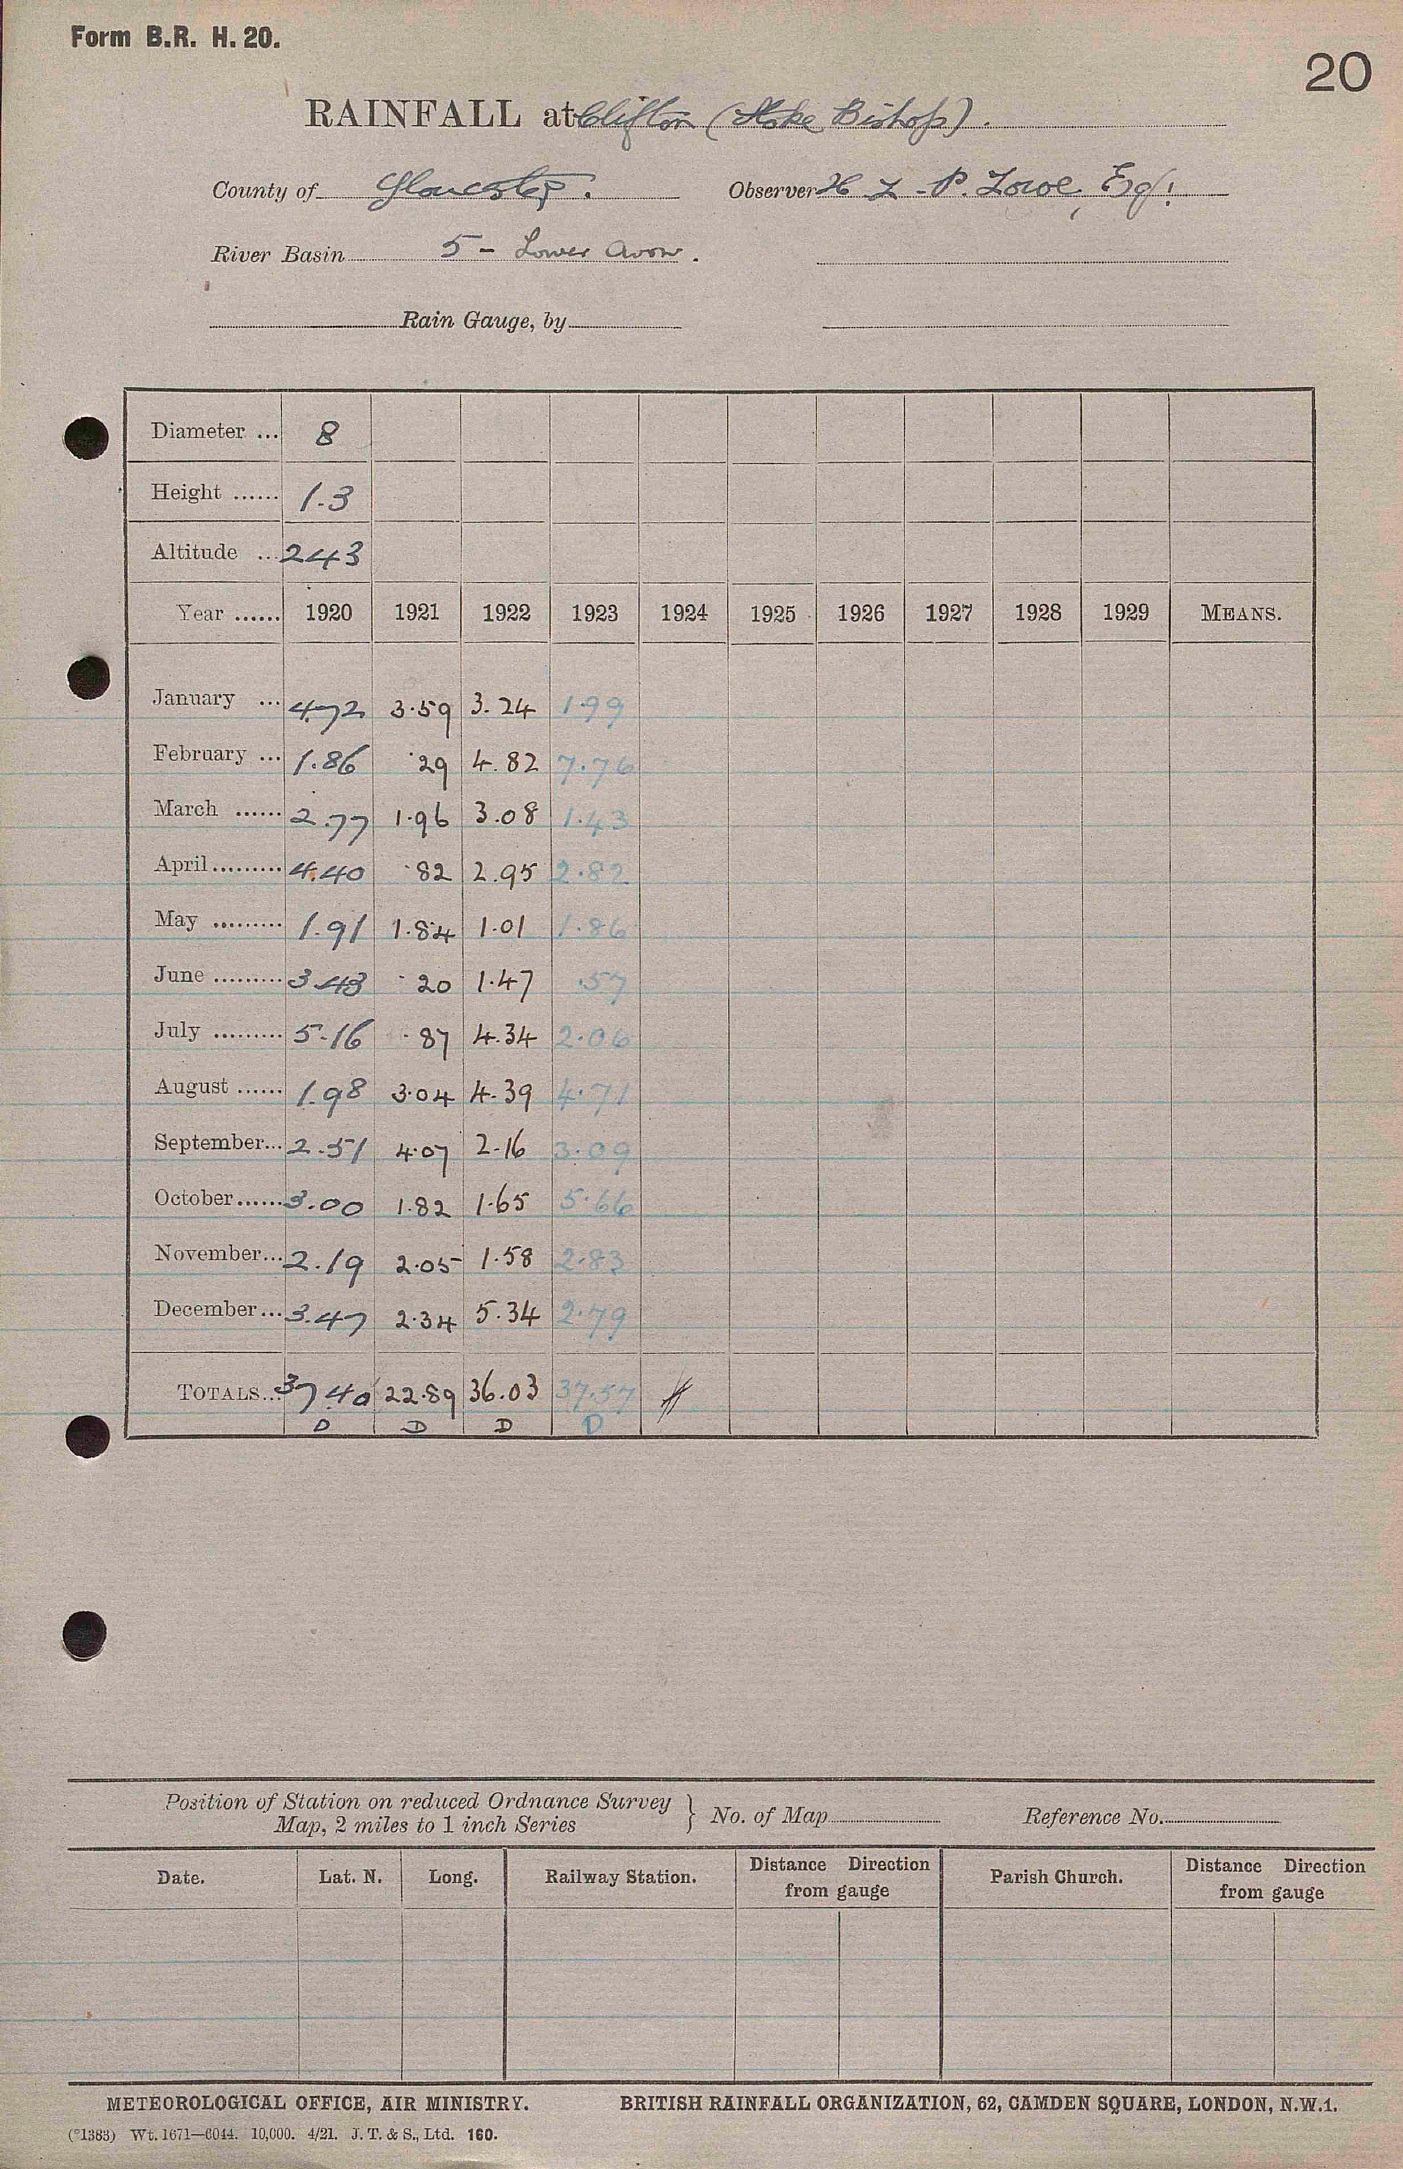 Form B.R. H. 20.
20
RAINFALL at Clifton (Stoke Bishop).
County of Gloucester. Observer H. L. P. Lowe, Esq.
River Basin 5 - Lower Avon.
Rain Gauge, by
Diameter ... 8
Height ...... 1.3
Altitude ... 243
Year ...... 1920 1921 1922 1923 1924 1925 1926 1927 1928 1929 MEANS.
January ... 4.72 3.59 3.24 1.99
February ... 1.86 .29 4.82 7.76
March ...... 2.77 1.96 3.08 1.43
April ......... 4.40 .82 2.95 2.82
May ......... 1.91 1.84 1.01 1.86
June ......... 3.43 .20 1.47 .57
July ......... 5.16 .87 4.34 2.06
August ...... 1.98 3.04 4.39 4.71
September... 2.51 4.07 2.16 3.09
October...... 3.00 1.82 1.65 5.66
November... 2.19 2.05 1.58 2.83
December... 3.47 2.34 5.34 2.79
TOTALS... 37.40 22.89 36.03 37.57
D D D D
Position of Station on reduced Ordnance Survey
Map, 2 miles to 1 inch Series } No. of Map Reference No.
Date. Lat. N. Long. Railway Station. Distance Direction from gauge Parish Church. Distance Direction from gauge
METEOROLOGICAL OFFICE, AIR MINISTRY. BRITISH RAINFALL ORGANIZATION, 62, CAMDEN SQUARE, LONDON, N.W.1.
(*1383) Wt. 1671—6044. 10,000. 4/21. J. T. & S., Ltd. 160.